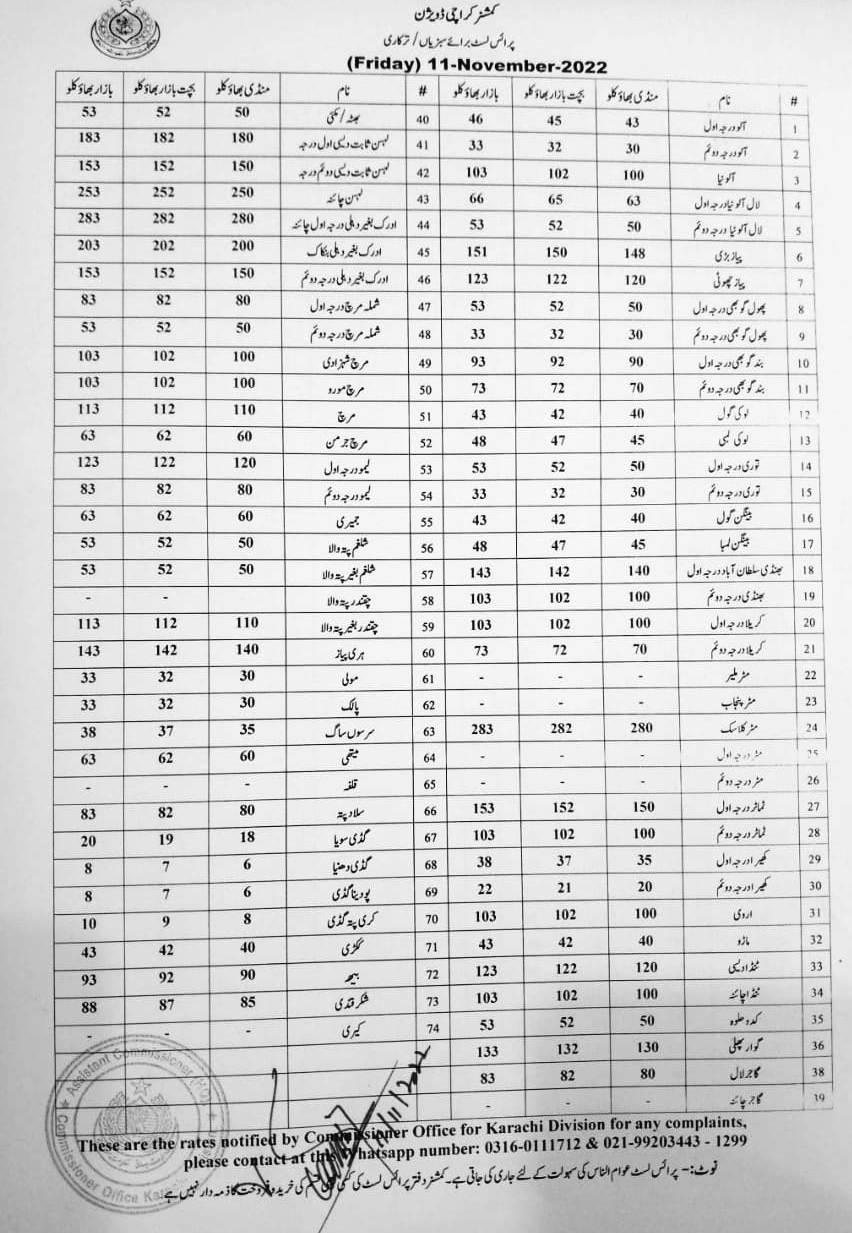 کمشنر کراچی ڈویژن
پرائس لسٹ برائے سبزیاں / ترکاری
(Friday) 11-November-2022
# نام منڈی بھاؤ کلو بچت بازار بھاؤ کلو بازار بھاؤ کلو # نام منڈی بھاؤ کلو بچت بازار بھاؤ کلو بازار بھاؤ کلو
1 آلو درجہ اول 43 45 46 40 بھٹہ / مکئی 50 52 53
2 آلو درجہ دوئم 30 32 33 41 لہسن ثابت دیسی اول درجہ 180 182 183
3 آلو نیا 100 102 103 42 لہسن ثابت دیسی دوئم درجہ 150 152 153
4 لال آلو نیا درجہ اول 63 65 66 43 لہسن چائنہ 250 252 253
5 لال آلو نیا درجہ دوئم 50 52 53 44 ادرک بغیر دہلی درجہ اول چائنہ 280 282 283
6 پیاز بڑی 148 150 151 45 ادرک بغیر دہلی بنکاک 200 202 203
7 پیاز چھوٹی 120 122 123 46 ادرک بغیر دہلی درجہ دوئم 150 152 153
8 پھول گوبھی درجہ اول 50 52 53 47 شملہ مرچ درجہ اول 80 82 83
9 پھول گوبھی درجہ دوئم 30 32 33 48 شملہ مرچ درجہ دوئم 50 52 53
10 بند گوبھی درجہ اول 90 92 93 49 مرچ شہزادی 100 102 103
11 بند گوبھی درجہ دوئم 70 72 73 50 مرچ مورو 100 102 103
12 لوکی گول 40 42 43 51 مرچ 110 112 113
13 لوکی لمبی 45 47 48 52 مرچ جرمن 60 62 63
14 توری درجہ اول 50 52 53 53 لیمو درجہ اول 120 122 123
15 توری درجہ دوئم 30 32 33 54 لیمو درجہ دوئم 80 82 83
16 بینگن گول 40 42 43 55 جمیری 60 62 63
17 بینگن لمبا 45 47 48 56 شلغم پتہ والا 50 52 53
18 بھنڈی سلطان آباد درجہ اول 140 142 143 57 شلغم بغیر پتہ والا 50 52 53
19 بھنڈی درجہ دوئم 100 102 103 58 چقندر پتہ والا - - -
20 کریلا درجہ اول 100 102 103 59 چقندر بغیر پتہ والا 110 112 113
21 کریلا درجہ دوئم 70 72 73 60 ہری پیاز 140 142 143
22 مٹر ملیر - - - 61 مولی 30 32 33
23 مٹر پنجاب - - - 62 پالک 30 32 33
24 مٹر کلاسک 280 282 283 63 سرسوں ساگ 35 37 38
25 مٹر درجہ اول - - - 64 میتھی 60 62 63
26 مٹر درجہ دوئم - - - 65 قلفہ - - -
27 ٹماٹر درجہ اول 150 152 153 66 سلاد پتہ 80 82 83
28 ٹماٹر درجہ دوئم 100 102 103 67 گڈی سویا 18 19 20
29 کھیرا درجہ اول 35 37 38 68 گڈی دھنیا 6 7 8
30 کھیرا درجہ دوئم 20 21 22 69 پودینا گڈی 6 7 8
31 اروی 100 102 103 70 کری پتہ گڈی 8 9 10
32 مارو 40 42 43 71 ککڑی 40 42 43
33 ٹنڈا دیسی 120 122 123 72 بیہہ 90 92 93
34 ٹنڈا چائنہ 100 102 103 73 شکر قندی 85 87 88
35 کدو حلوہ 50 52 53 74 کیری - - -
36 گوار پھلی 130 132 133
38 گاجر لال 80 82 83
39 گاجر چائنہ - - -
Assistant Commissioner (HQ)
Commissioner Office Karachi
11/11/2022
These are the rates notified by Commissioner Office for Karachi Division for any complaints,
please contact at this Whatsapp number: 0316-0111712 & 021-99203443 - 1299
نوٹ:- پرائس لسٹ عوام الناس کی سہولت کے لئے جاری کی جاتی ہے۔ کمشنر دفتر پرائس لسٹ کی کسی بھی قسم کی خرید و فروخت کا ذمہ دار نہیں ہے